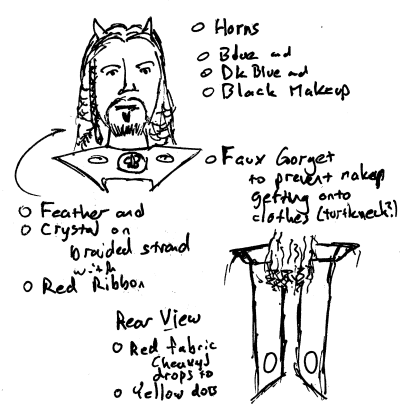 Horns
Blue and
Dk Blue and
Black Makeup
Faux Gorget
to prevent makeup
getting onto
clothes (turtleneck?)
Feather and
Crystal on
braided strand
with
Red Ribbon
Rear View
Red fabric
(heavy)
drops to
Yellow dots